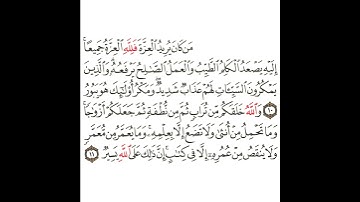 مَن كَانَ يُرِيدُ الْعِزَّةَ فَلِلَّهِ الْعِزَّةُ جَمِيعًا ۚ
إِلَيْهِ يَصْعَدُ الْكَلِمُ الطَّيِّبُ وَالْعَمَلُ الصَّالِحُ يَرْفَعُهُ ۚ وَالَّذِينَ
يَمْكُرُونَ السَّيِّئَاتِ لَهُمْ عَذَابٌ شَدِيدٌ ۖ وَمَكْرُ أُولَٰئِكَ هُوَ يَبُورُ
١٠ وَاللَّهُ خَلَقَكُم مِّن تُرَابٍ ثُمَّ مِن نُّطْفَةٍ ثُمَّ جَعَلَكُمْ أَزْوَاجًا ۚ
وَمَا تَحْمِلُ مِنْ أُنثَىٰ وَلَا تَضَعُ إِلَّا بِعِلْمِهِ ۚ وَمَا يُعَمَّرُ مِن مُّعَمَّرٍ
وَلَا يُنقَصُ مِنْ عُمُرِهِ إِلَّا فِي كِتَابٍ ۚ إِنَّ ذَٰلِكَ عَلَى اللَّهِ يَسِيرٌ ١١